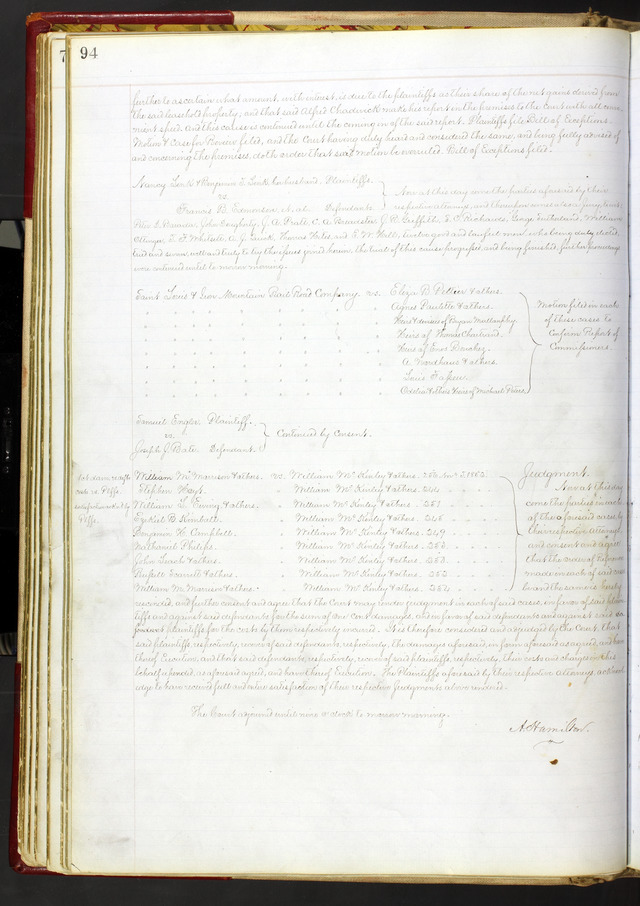 94
7
further to ascertain what amount, with interest, is due to the plaintiffs as their share of the net gains derived from
the said leasehold property, and that said Alfred Chadwick make his report in the premises to the Court with all convenient
speed. And this cause is continued until the coming in of the said report. Plaintiffs file Bill of Exceptions,
Motion & Case for Review filed, and the Court having duly heard and considered the same, and being fully advised of
and concerning the premises, doth order that said motion be overruled. Bill of Exceptions filed.
Nancy Lusk & Benjamin T. Lusk her husband. Plaintiffs.
vs.
Francis B. Edmonson, et al. Defendants.
Now at this day come the parties aforesaid by their
respective attorneys, and thereupon comes also a jury, to wit:
A. Pratt, C. A. Brewster, J. R. Griffith, E. C. Richards, George Sutherland, William
T. F. Whitsett, A. J. Lusk, Thomas and E. W. Hall, twelve good and lawful men, who being duly elected,
tried and sworn, well and truly to try the issues joined herein, the trial of this cause progressed, and being finished, further proceedings
were continued until to-morrow morning.
Saint Louis & Iron Mountain Rail Road Company vs. Eliza B. Peltier & others.
Agnes Paulette & others.
Heirs & devisees of Bryan Mullanphy.
Heirs of Thomas Chartrand.
Heirs of Enos
A. Nordhaus & others.
Louis
& others Heirs of Michael
Motion filed in each
of these cases to
Confirm Report of
Commissioners.
Samuel Engler Plaintiff.
vs.
Joseph J. Bate. Defendant.
Continued by Consent.
costs vs. Plffs.
Satisfaction ackd by
Plffs.
William M. Morrison & others. vs. William McKinley & others. 1862.
Stephen Hoyt. " William McKinley & others.
William L. Ewing & others. " William McKinley & others. 257
Ezekiel B. Kimball. " William McKinley & others. 248
Benjamin H. Campbell. " William McKinley & others. 249
Nathaniel Phelps. " William McKinley & others.
John Leach & others. " William McKinley & others.
Russell Scarritt & others. " William McKinley & others.
William M. Morrison & others. " William McKinley & others.
Judgment.
Now at this day
come the parties in each
of the aforesaid cases, by
their respective Attorneys
and consent and agree
that the order of Reference
made in each of said cases
be and the same is hereby
rescinded, and further consent and agree that the Court may render judgment in each of said cases, in favor of said plaintiffs
and against said defendants for the sum of one Cent damages, and in favor of said defendants and against said
plaintiffs for the costs by them respectively incurred. It is therefore considered and adjudged by the Court that
said plaintiffs, respectively, recover of said defendants, respectively, the damages aforesaid, in form aforesaid assigned, and have
thereof Execution, and that said defendants, respectively, recover of said plaintiffs, respectively, their costs and charges in this
behalf expended, as aforesaid agreed, and have thereof Execution. The Plaintiffs aforesaid by their respective Attorneys, acknowledge
to have received full and entire satisfaction of their respective judgments above rendered.
The Court adjourned until nine o'clock to-morrow morning.
A. Hamilton.